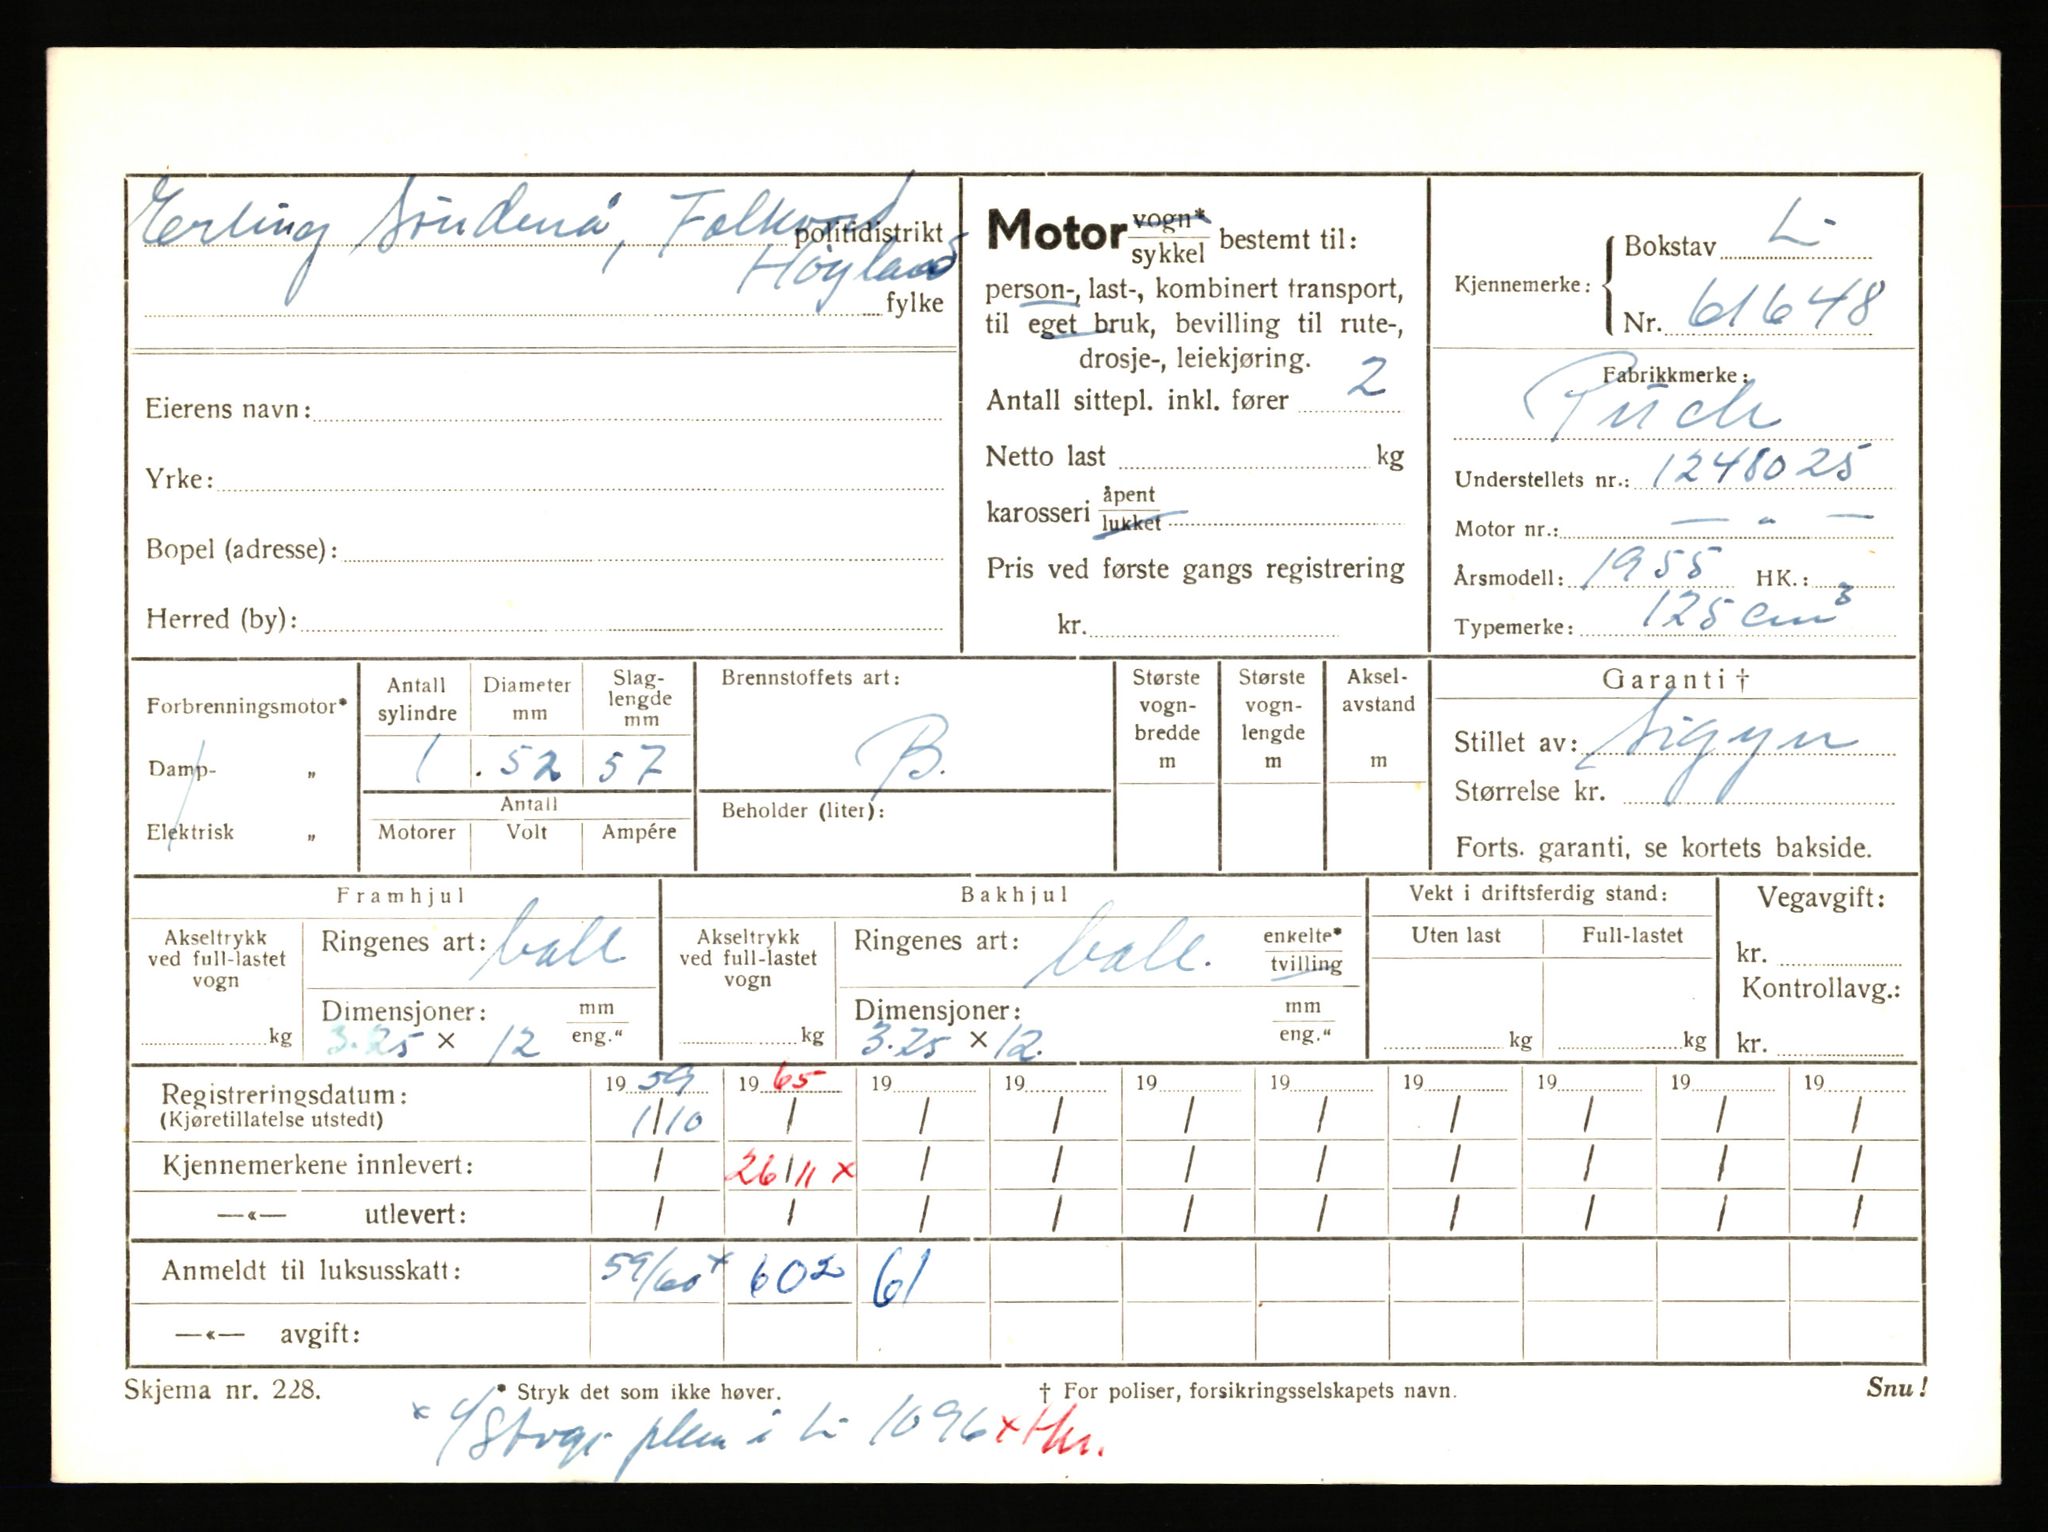 Erling Söndenå, Folkvord
politidistrikt
Høyland
fylke
Eierens navn:
Yrke:
Bopel (adresse):
Herred (by):
Motor vogn* / sykkel bestemt til:
person-, last-, kombinert transport,
til eget bruk, bevilling til rute-,
drosje-, leiekjøring.
Antall sittepl. inkl. fører 2
Netto last kg
karosseri åpent / lukket
Pris ved første gangs registrering
kr.
Kjennemerke: Bokstav L-
Nr. 61648
Fabrikkmerke:
Püch
Understellets nr.: 1248025
Motor nr.: — „ —
Årsmodell: 1955 HK.:
Typemerke: 125 cm³
Forbrenningsmotor*
Damp- „
Elektrisk „
Antall sylindre 1
Diameter mm 52
Slaglengde mm 57
Antall
Motorer Volt Ampére
Brennstoffets art:
B.
Beholder (liter):
Største vognbredde m
Største vognlengde m
Akselavstand m
Garanti †
Stillet av: Sigyn
Størrelse kr.
Forts. garanti, se kortets bakside.
Framhjul
Akseltrykk ved full-lastet vogn kg
Ringenes art: ball
Dimensjoner: mm / eng.“
3.25 x 12
Bakhjul
Akseltrykk ved full-lastet vogn kg
Ringenes art: ball. enkelte* / tvilling
Dimensjoner: mm / eng.“
3.25 x 12.
Vekt i driftsferdig stand:
Uten last Full-lastet
kg kg
Vegavgift:
kr.
Kontrollavg.:
kr.
Registreringsdatum: 19 59 19 65 19 19 19 19 19 19 19 19
(Kjøretillatelse utstedt) 1/10 / / / / / / / / /
Kjennemerkene innlevert: / 26/11 x / / / / / / / /
—«— utlevert: / / / / / / / / / /
Anmeldt til luksusskatt: 59/60 x 602 61
—«— avgift:
Skjema nr. 228. * Stryk det som ikke høver. † For poliser, forsikringsselskapets navn. Snu!
x i L- 1096 x Hkr.